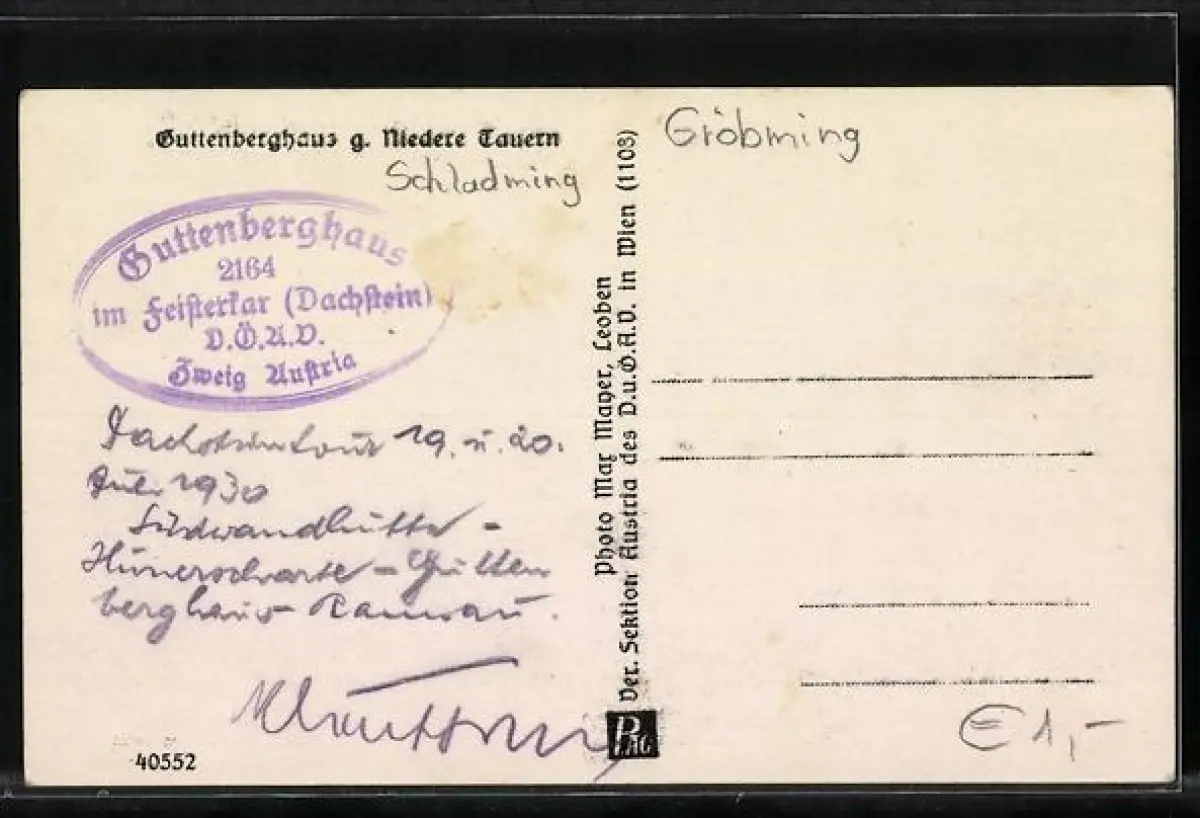 Guttenberghaus g. Niedere Tauern
Schladming
Guttenberghaus
2164
im Feisterkar (Dachstein)
D.Ö.A.V.
Zweig Austria
Dachsteintour 19. u. 20.
Juli 1930
Südwandhütte -
Hunerscharte - Gutten
berghaus - Ramsau.
40552
Photo Max Mayer, Leoben
Ver. Sektion Austria des D.u.Ö.A.V. in Wien (1103)
PAG
Gröbming
€ 1,-